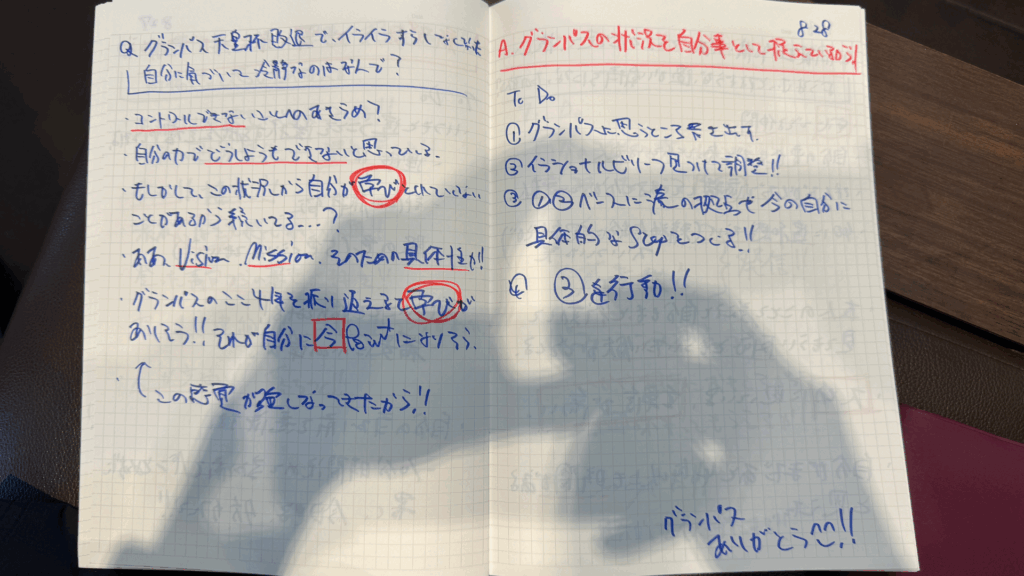 Q. グランパス 天皇杯敗退で、イライラするしなくとも
自分に気づいて冷静なのはなんで？
・コントロールできないことへのあきらめ？
・自分の力でどうしようもできないと思っている。
・もしかして、この状況から自分が学びとれていない
ことがあるから続いてる…？
・ああ、Vision、Mission、そのための具体性か!!
・グランパスのここ4年を振り返えると学びが
ありそう!! それが自分に今Pointになりそう。
・この感覚が強くなってきたから!!
8 28
A. グランパスの状況を自分事として捉えているから!
To Do
① グランパスに思うところ書き出す.
② イラショナルビリーフ見つけて調整!!
③ ①②ベースに の視点で今の自分に
具体的なStepをつくる!!
④ ③を行動!!
グランパス
ありがとう^^!!